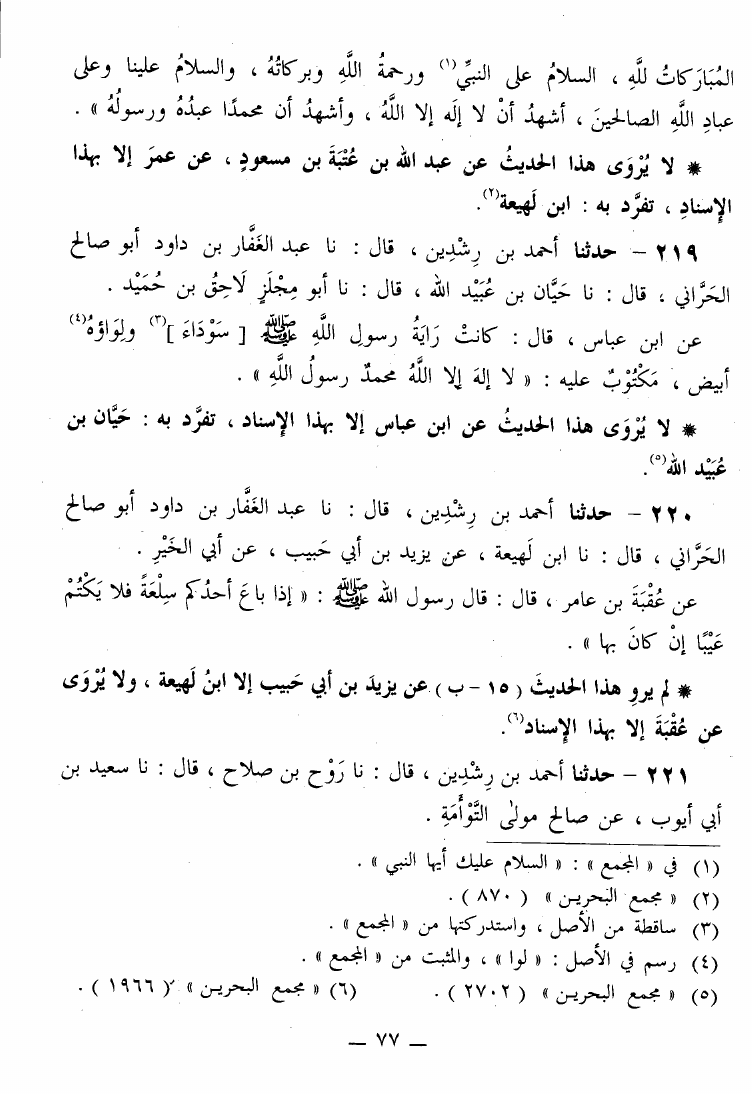 المُبَارَكَاتُ للَّهِ ، السلامُ على النبيِّ(١) ورحمةُ اللَّهِ وبركاتُهُ ، والسلامُ علينا وعلى
عبادِ اللَّهِ الصالحينَ ، أشهدُ أنْ لا إلَه إلا اللَّهُ ، وأشهدُ أن محمدًا عبدُهُ ورسولُهُ » .
* لا يُرْوَى هذا الحديثُ عن عبد الله بن عُتْبَةَ بن مسعودٍ ، عن عمرَ إلا بهذا
الإسنادِ ، تفرَّد به : ابن لَهيعة(٢).
٢١٩ – حدثنا أحمد بن رِشْدِين ، قال : نا عبد الغَفَّار بن داود أبو صالح
الحَرَّاني ، قال : نا حَيَّان بن عُبَيْد الله ، قال : نا أبو مِجْلَزٍ لَاحِقُ بن حُمَيْد .
عن ابن عباس ، قال : كانتْ رَايَةُ رسولِ اللَّهِ ﷺ [ سَوْدَاءَ ](٣) ولِوَاؤهُ(٤)
أبيض ، مَكْتُوْبٌ عليه : « لا إلهَ إلا اللَّهُ محمدٌ رسولُ اللَّهِ » .
* لا يُرْوَى هذا الحديثُ عن ابن عباس إلا بهذا الإسناد ، تفرَّد به : حَيَّان بن
عُبَيْد الله(٥).
٢٢٠ – حدثنا أحمد بن رِشْدِين ، قال : نا عبد الغَفَّار بن داود أبو صالح
الحَرَّاني ، قال : نا ابن لَهيعة ، عن يزيد بن أبي حَبيب ، عن أبي الخَيْرِ .
عن عُقْبَةَ بن عامر ، قال : قال رسول الله ﷺ : « إذا باعَ أحدُكم سِلْعَةً فلا يَكْتُمْ
عَيْبًا إنْ كانَ بها » .
* لم يروِ هذا الحديثَ ( ١٥ – ب ) عن يزيدَ بن أبي حَبيب إلا ابنُ لَهيعة ، ولا يُرْوَى
عن عُقْبَةَ إلا بهذا الإسناد(٦).
٢٢١ – حدثنا أحمد بن رِشْدِين ، قال : نا رَوْح بن صلاح ، قال : نا سعيد بن
أبي أيوب ، عن صالح مولىٰ التَّوْأَمَةِ .
(١) في « المجمع » : « السلام عليك أيها النبي » .
(٢) « مجمع البحرين » ( ٨٧٠ ) .
(٣) ساقطة من الأصل ، واستدركتها من « المجمع » .
(٤) رسم في الأصل : « لوا » ، والمثبت من « المجمع » .
(٥) « مجمع البحرين » ( ٢٧٠٢ ) . (٦) « مجمع البحرين » ( ١٩٦٦ ) .
– ٧٧ –